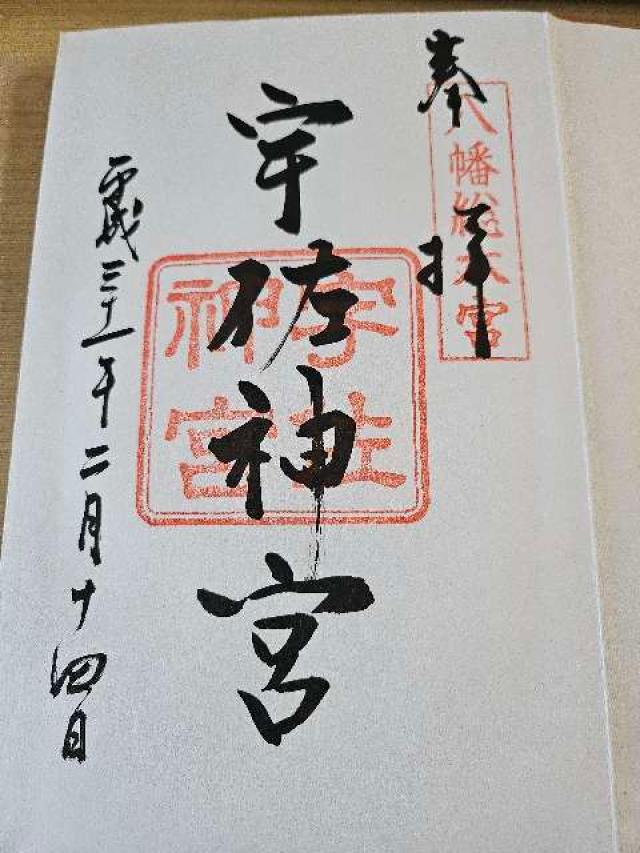 奉拝
八幡総本宮
宇佐神宮
宇佐神宮
平成三十一年二月十四日